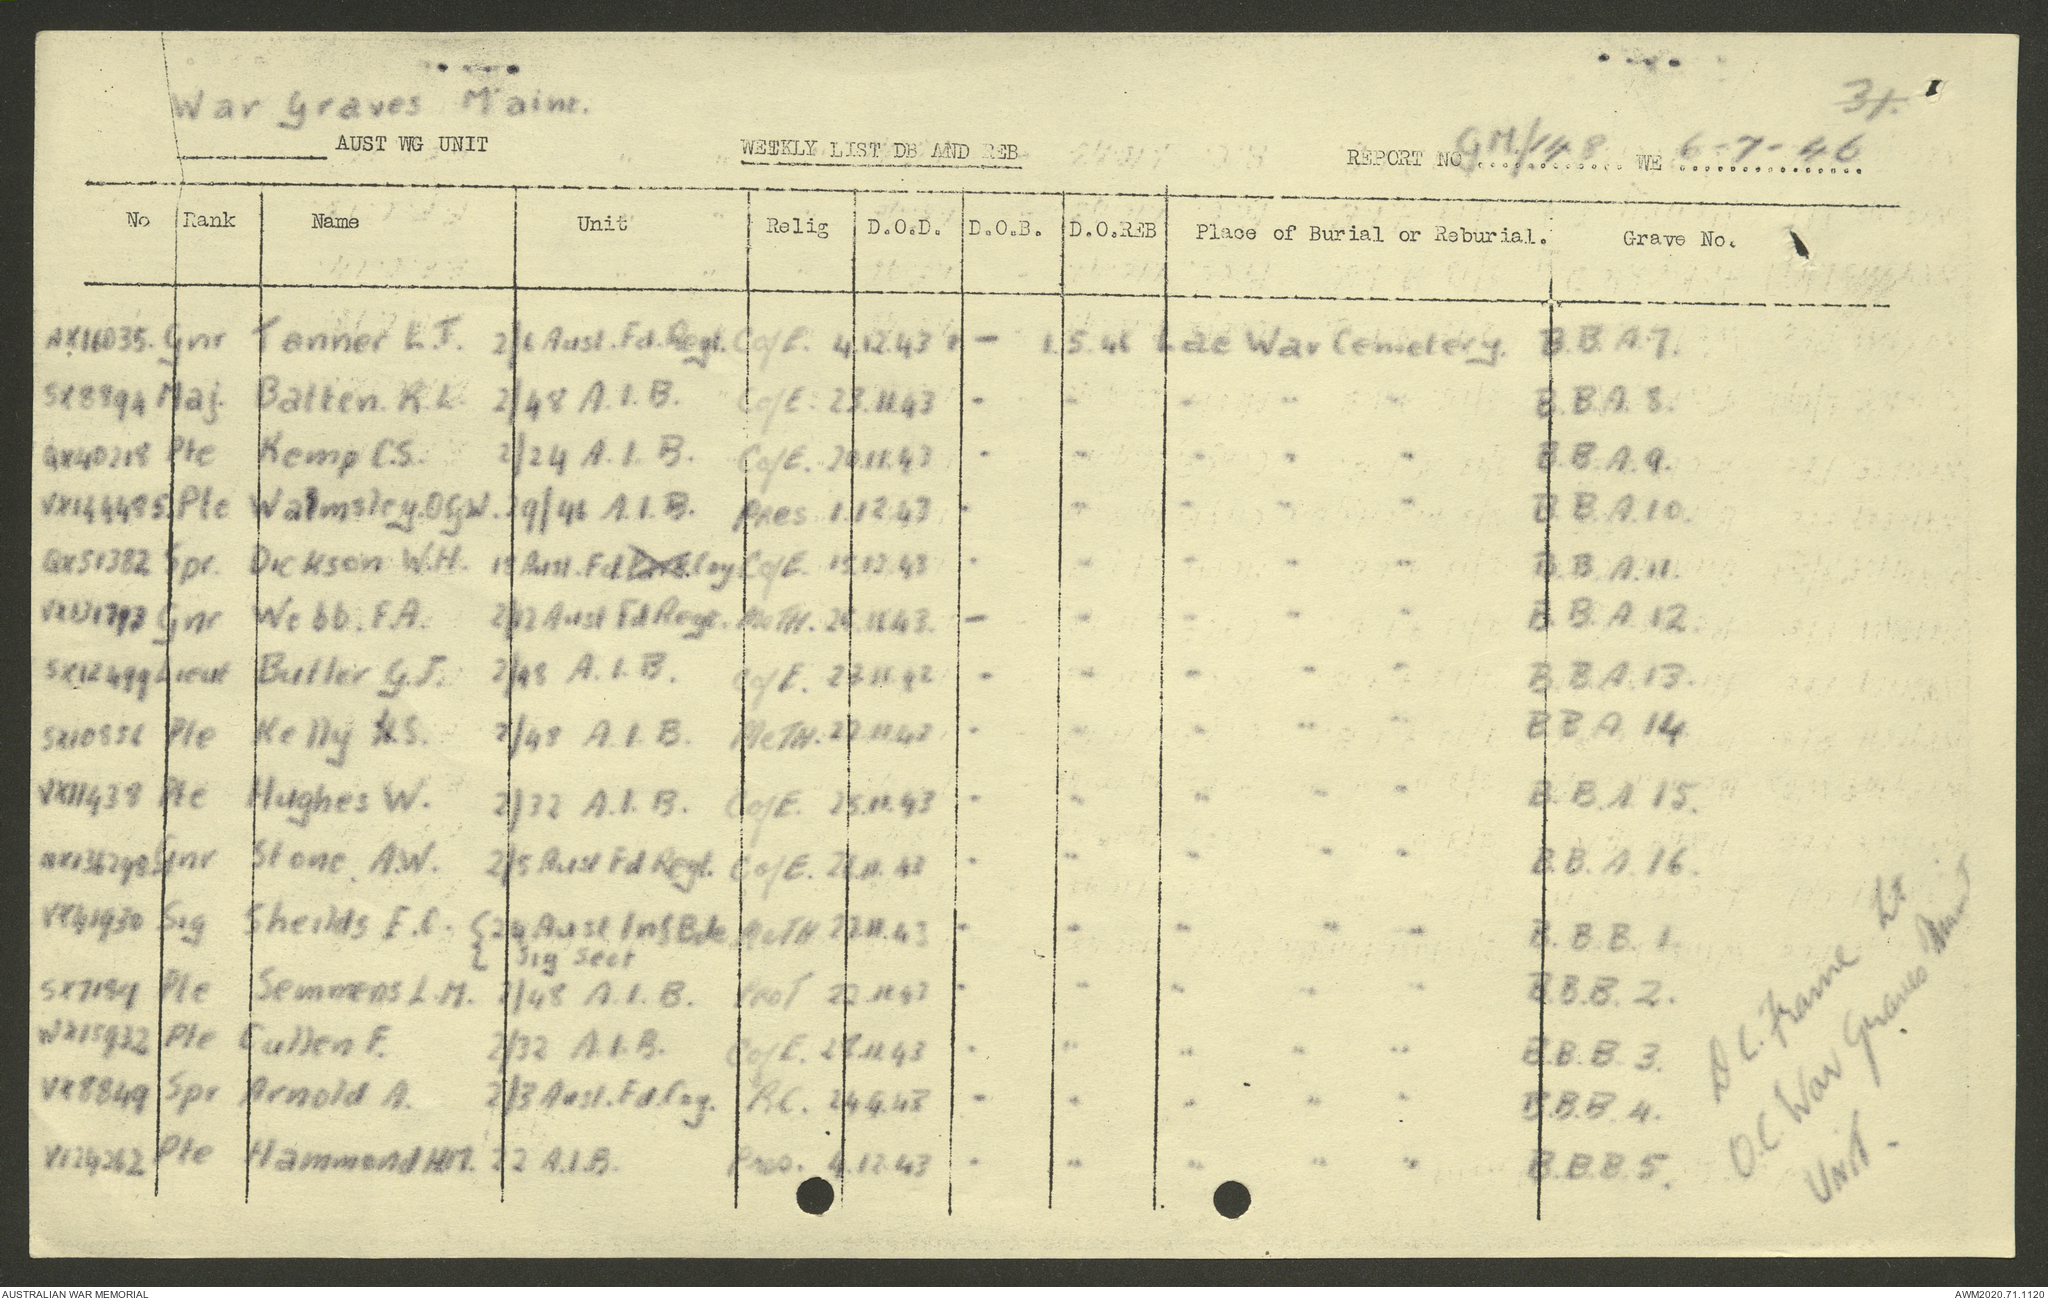 War Graves Maint.
3x.
AUST WG UNIT WEEKLY LIST DB AND REB REPORT NO GM/148 WE 6-7-46
No Rank Name Unit Relig D.O.D. D.O.B. D.O.REB Place of Burial or Reburial. Grave No.
AX16035. Gnr Tanner L.J. 2/6 Aust. Fd. Regt. Co/E. 4.12.43 - 1.5.46 Lae War Cemetery. B.B.A.7.
SX8894 Maj. Batten. R.L. 2/48 A.I.B. Co/E. 23.11.43 - " " " " B.B.A.8.
QX40218 Pte Kemp C.S. 2/24 A.I.B. Co/E. 20.11.43 - " " " " B.B.A.9.
VX144485. Pte Walmsley. O.G.W. 29/46 A.I.B. Pres 1.12.43 - " " " " B.B.A.10.
QX51382 Spr. Dickson W.H. 15 Aust. Fd Coy. Co/E. 15.12.43 - " " " " B.B.A.11.
Gnr Webb. F.A. 2/12 Aust Fd Regt. MeTH. - " " " " B.B.A.12.
SX12499 Lieut Butler G.J. 2/48 A.I.B. Co/E. - " " " " B.B.A.13.
SX10856 Pte Kelly S. 2/48 A.I.B. MeTH. 22.11.43 - " " " " B.B.A.14
VX11438 Pte Hughes W. 2/32 A.I.B. Co/E. 25.11.43 - " " " " B.B.A.15.
Gnr Stone A.W. 2/5 Aust Fd Regt. Co/E. - " " " " B.B.A.16.
VX41930 Sig Sheilds E.C. { 24 Aust Inf Bde MeTH - " " " " B.B.B.1.
Sig Sect
SX7189 Pte Semmens L.M. 2/48 A.I.B. ProT 22.11.43 - " " " " B.B.B.2.
WX15932 Pte Cullen F. 2/32 A.I.B. Co/E. 28.11.43 - " " " " B.B.B.3.
VX8849 Spr Arnold A. 2/3 Aust. Fd. Coy. R.C. 24.9.43 - " " " " B.B.B.4.
V124262 Pte Hammond H.M. 22 A.I.B. Pres. 4.12.43 - " " " " B.B.B.5.
D C. Frame Lt
O.C. War Graves Maint
Unit -
AUSTRALIAN WAR MEMORIAL AWM2020.71.1120